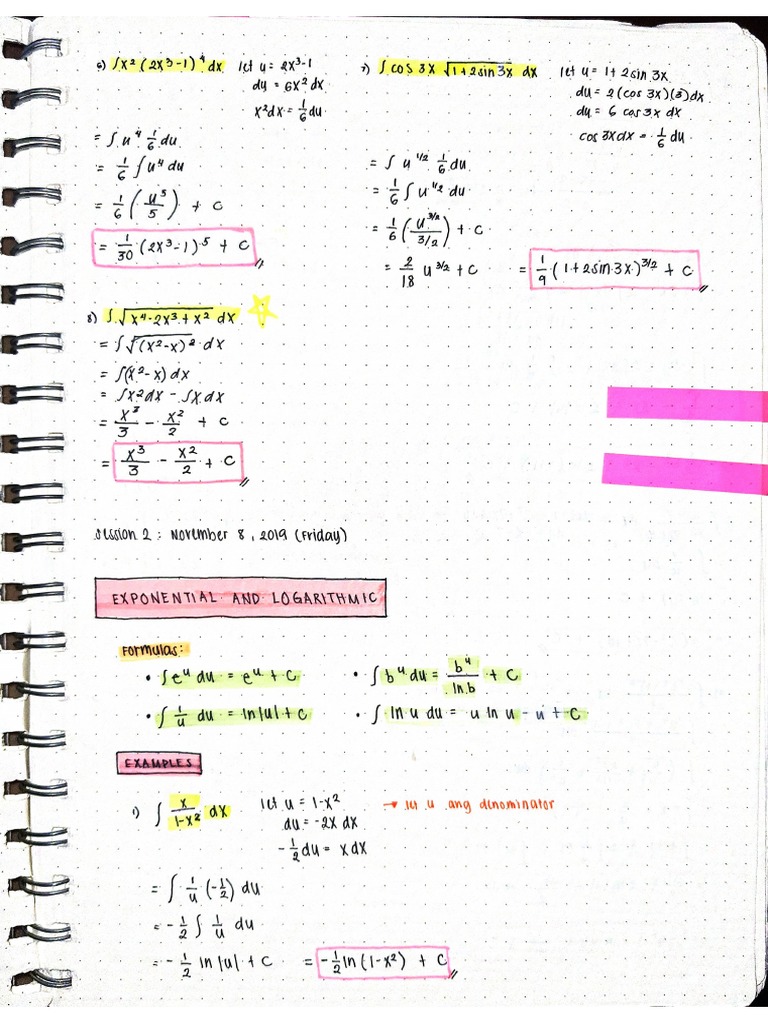 6) ∫x² (2x³-1)⁴ dx
let u = 2x³-1
du = 6x² dx
x²dx = 1/6 du
= ∫ u⁴ 1/6 du
= 1/6 ∫ u⁴ du
= 1/6 (u⁵/5) + C
= 1/30 (2x³-1)⁵ + C
7) ∫ cos 3x √(1+2sin 3x) dx
let u = 1+2sin 3x
du = 2(cos 3x)(3)dx
du = 6 cos 3x dx
cos 3xdx = 1/6 du
= ∫ u^1/2 1/6 du
= 1/6 ∫ u^1/2 du
= 1/6 (u^3/2 / 3/2) + C
= 2/18 u^3/2 + C = 1/9 (1+2sin 3x)^3/2 + C
8) ∫ √(x⁴-2x³+x²) dx
= ∫√(x²-x)² dx
= ∫(x²-x) dx
= ∫x²dx - ∫x dx
= x³/3 - x²/2 + C
= x³/3 - x²/2 + C
Session 2 : November 8, 2019 (Friday)
EXPONENTIAL AND LOGARITHMIC
Formulas:
• ∫e^u du = e^u + C • ∫ b^u du = b^u/ln b + C
• ∫ 1/u du = ln|u| + C • ∫ ln u du = u ln u - u + C
EXAMPLES
1) ∫ x/1-x² dx
let u = 1-x² → let u ang denominator
du = -2x dx
-1/2 du = x dx
= ∫ 1/u (-1/2) du
= -1/2 ∫ 1/u du
= -1/2 ln|u| + C = -1/2 ln (1-x²) + C